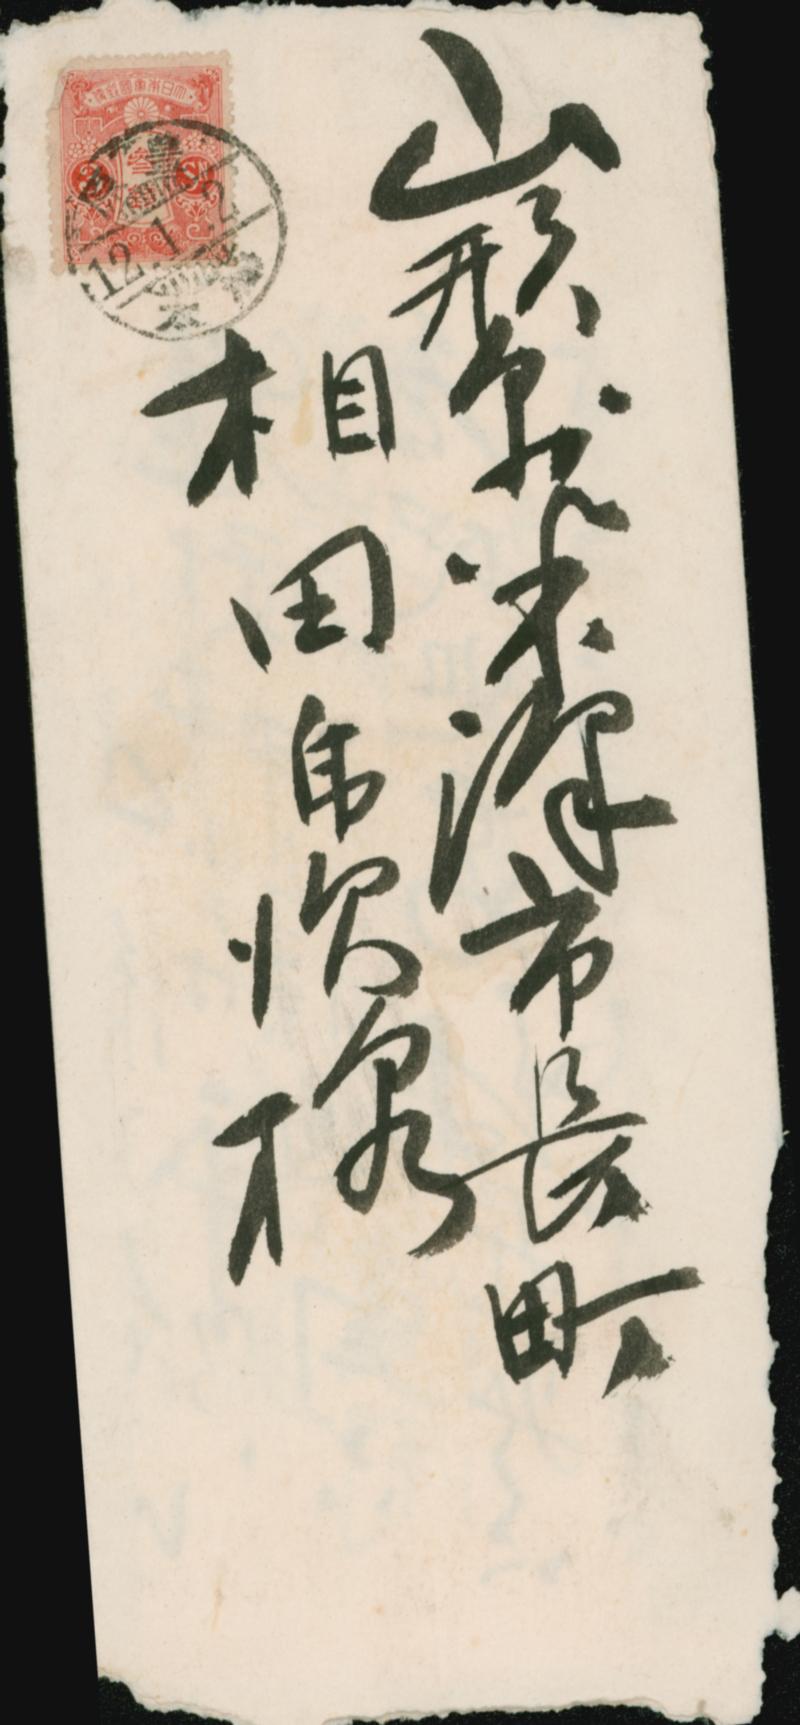 山形縣米澤市長町
相田乕次様
大日本帝國郵便
12.1.2